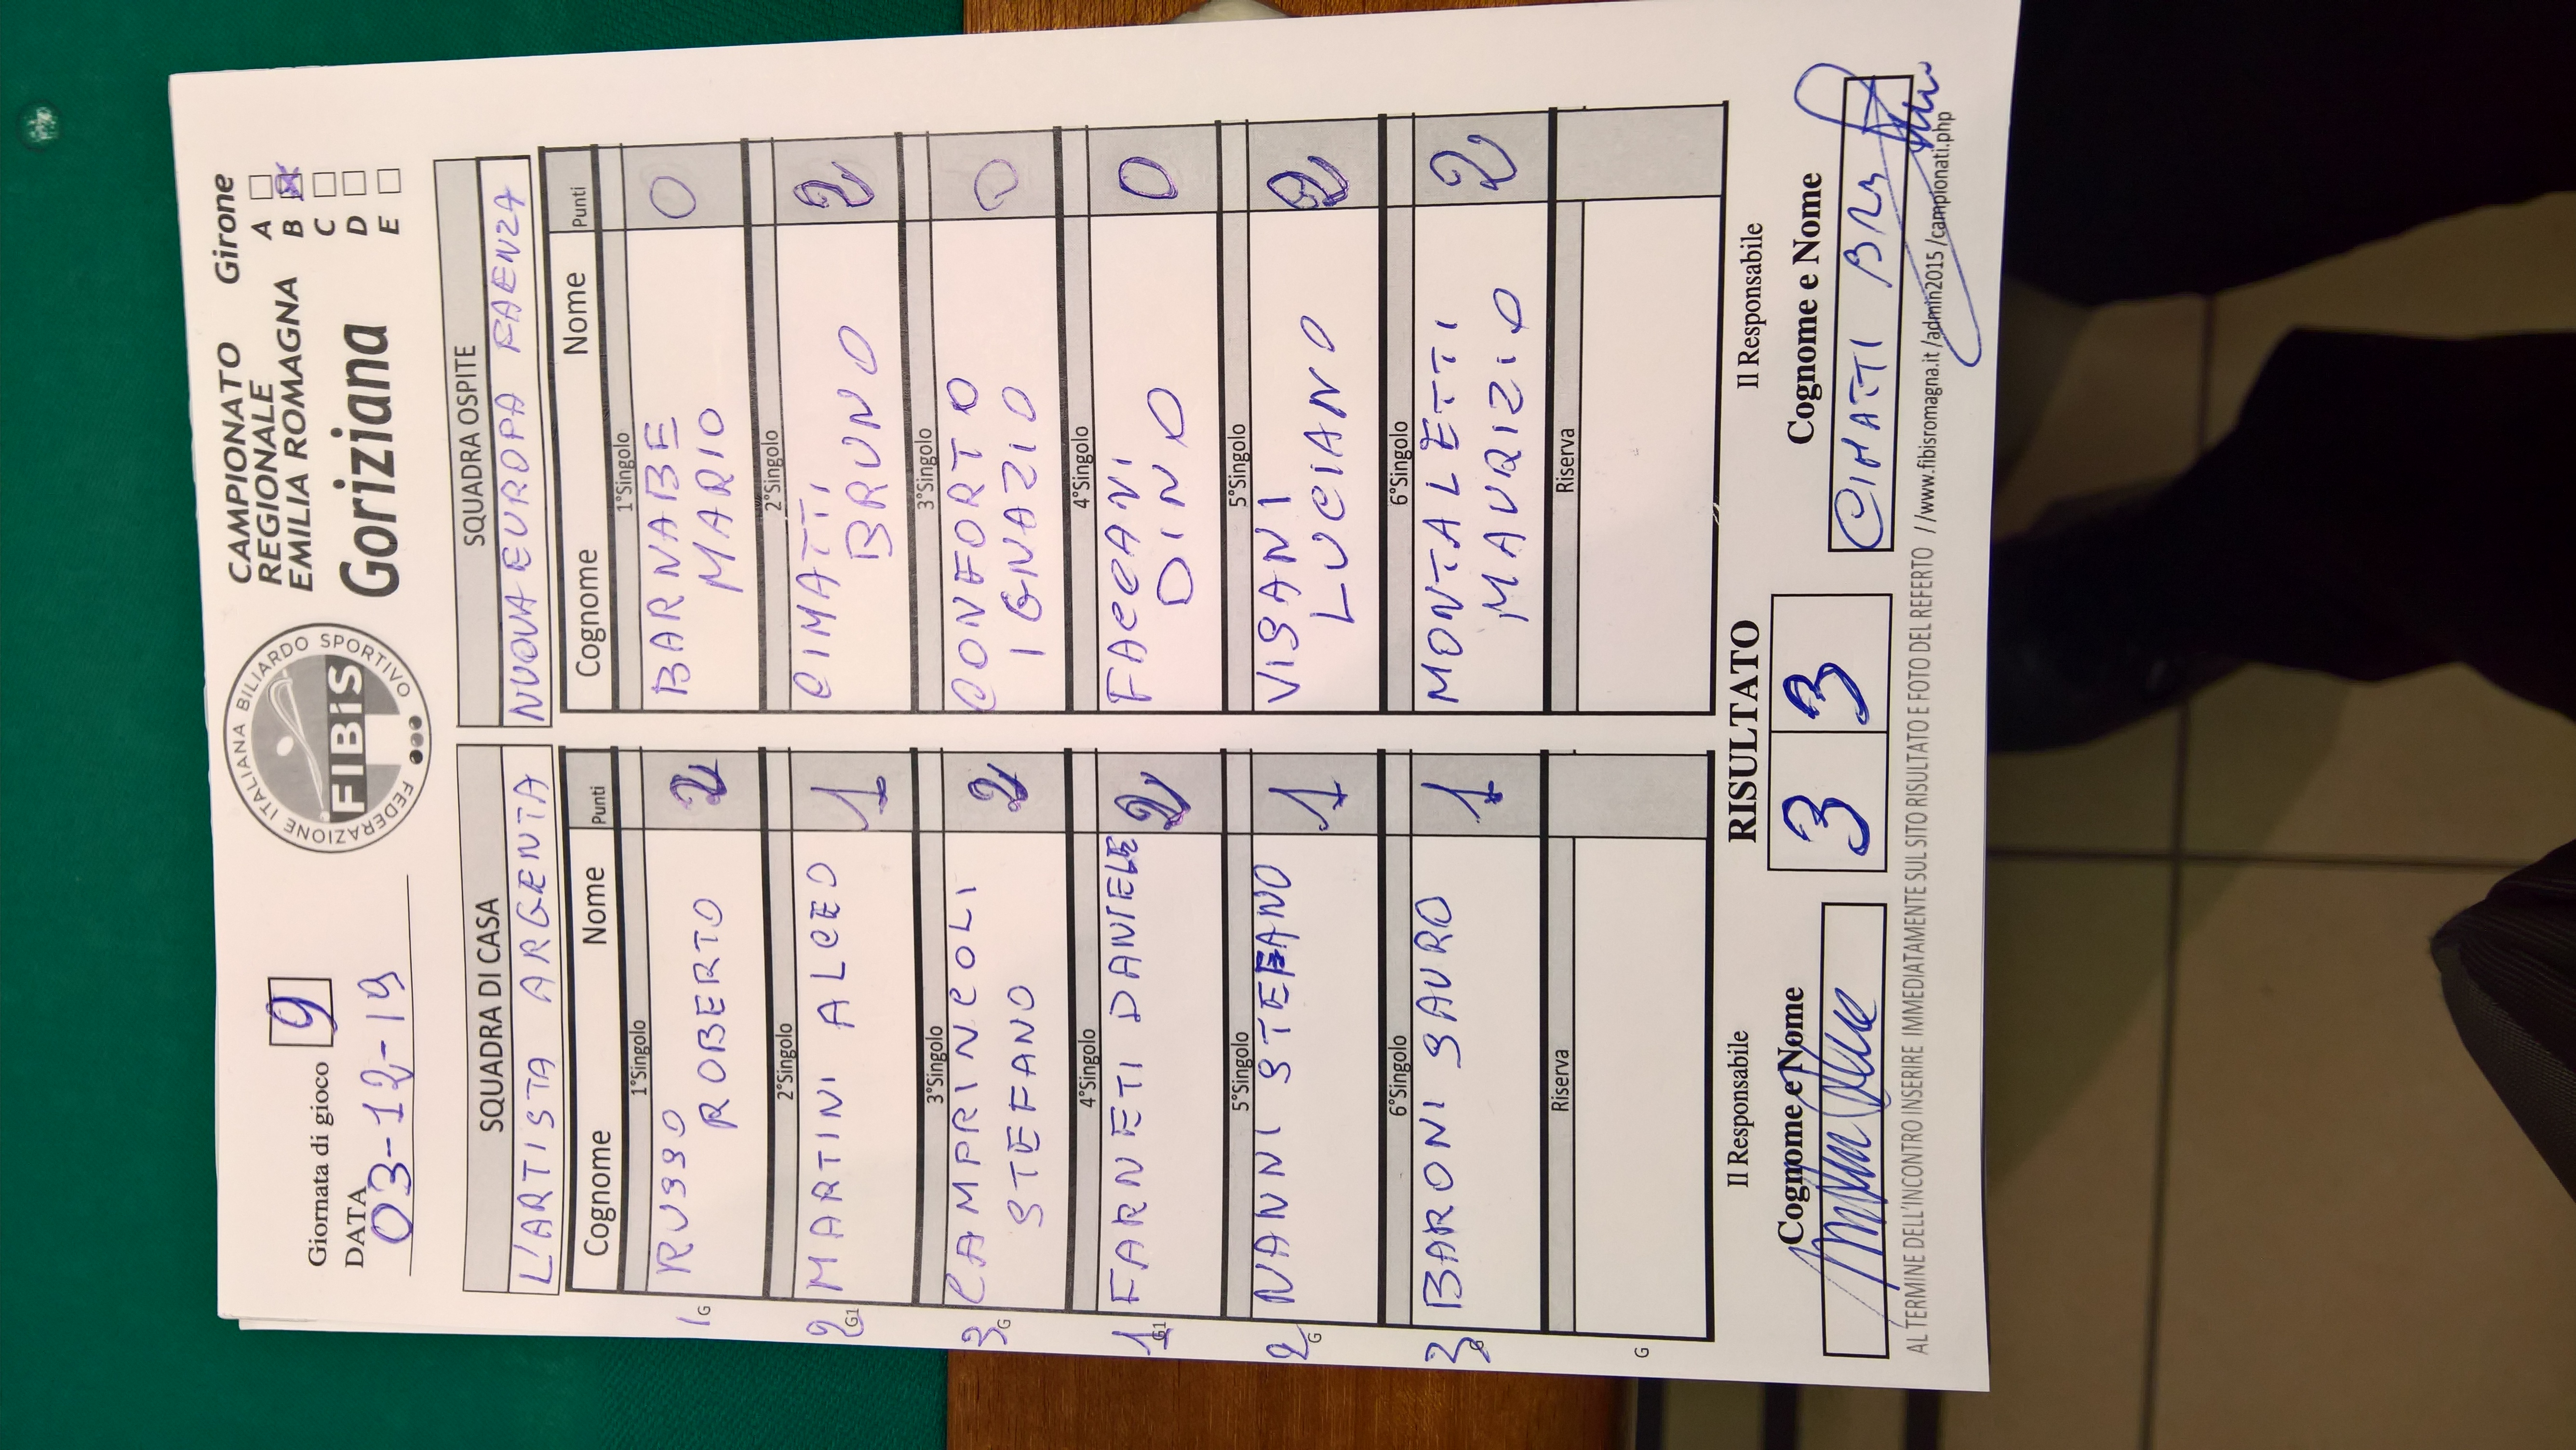 Giornata di gioco 9
DATA
03-12-19
FEDERAZIONE ITALIANA BILIARDO SPORTIVO
FIBiS
CAMPIONATO
REGIONALE
EMILIA ROMAGNA
Goriziana
Girone
A
B X
C
D
E
SQUADRA DI CASA
L'ARTISTA ARGENTA
Cognome Nome Punti
1°Singolo
RUSSO
ROBERTO 2
1 G
2°Singolo
MARTINI ALCEO 1
2 G1
3°Singolo
CAMPRINCOLI
STEFANO 2
3 G
4°Singolo
FARNETI DANIELE 2
1 G1
5°Singolo
NANNI STEFANO 1
2 G
6°Singolo
BARONI SAURO 1
3
Riserva
G
SQUADRA OSPITE
NUOVA EUROPA FAENZA
Cognome Nome Punti
1°Singolo
BARNABE
MARIO 0
2°Singolo
CIMATTI
BRUNO 2
3°Singolo
CONFORTO
IGNAZIO 0
4°Singolo
FACCANI
DINO 0
5°Singolo
VISANI
LUCIANO 2
6°Singolo
MONTALETTI
MAURIZIO 2
Riserva
Il Responsabile
Cognome e Nome
RISULTATO
3 3
Il Responsabile
Cognome e Nome
CIMATTI
AL TERMINE DELL'INCONTRO INSERIRE IMMEDIATAMENTE SUL SITO RISULTATO E FOTO DEL REFERTO //www.fibisromagna.it/admin2015/campionati.php